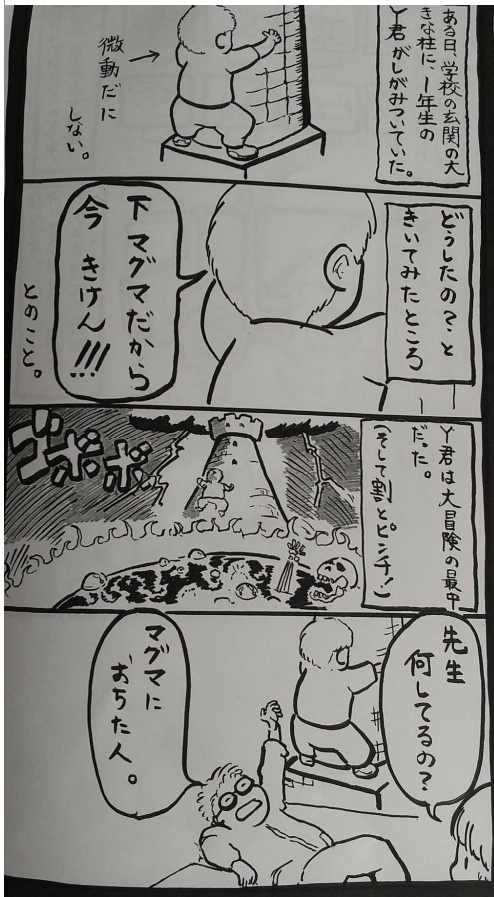 ある日、学校の玄関の大
きな柱に、1年生の
Y君がしがみついていた。
微動だに
しない。
どうしたの？と
きいてみたところ
下マグマだから
今 きけん!!!
とのこと。
Y君は大冒険の最中
だった。
(そして割とピンチ!)
ゴボボ
先生
何してるの？
マグマに
おちた人。